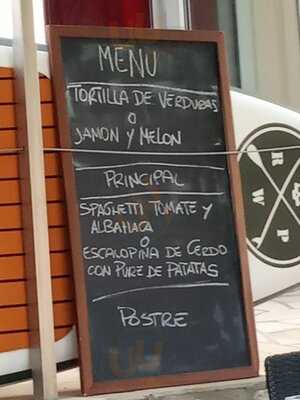 MENU
TORTILLA DE VERDURAS
O
JAMON Y MELON
PRINCIPAL
SPAGHETTI TOMATE Y
ALBAHACA
Ó
ESCALOPINA DE CERDO
CON PURE DE PATATAS
POSTRE
R
W P